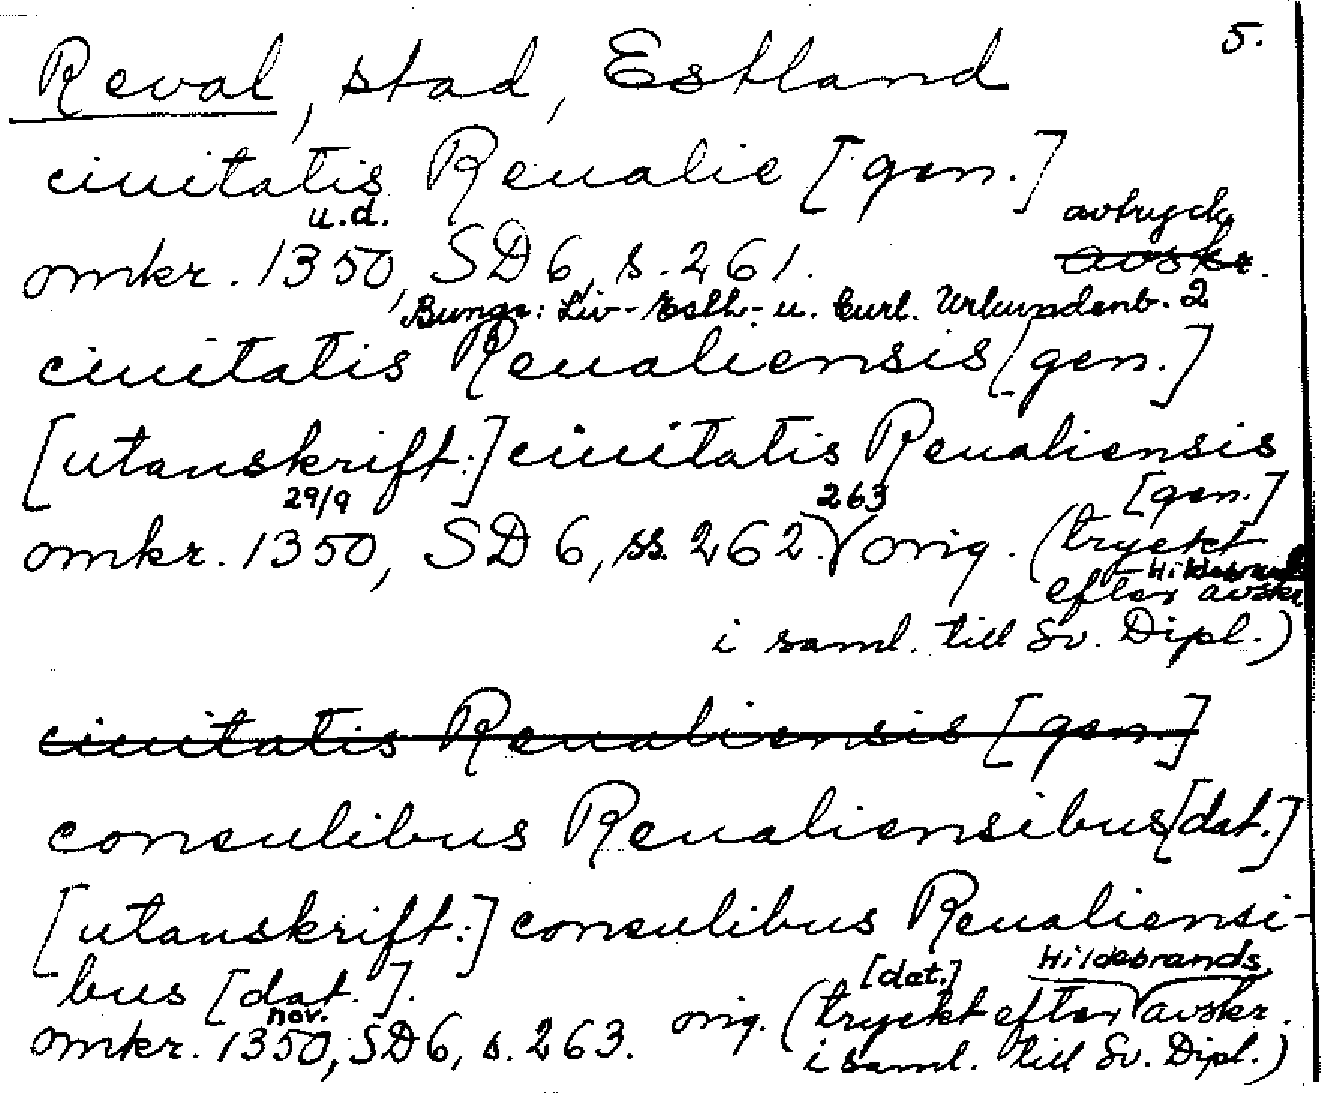 5.
Reval, stad, Estland
ciuitatis Reualie [gen.]
u.d. avtryck
omkr. 1350, SD 6, s. 261. avskr.
Bunge: Liv- Esth- u. Curl. Urkundenb. 2
ciuitatis Reualiensis [gen.]
[utanskrift:] ciuitatis Reualiensis
29/9 263 [gen.]
omkr. 1350, SD 6, ss. 262. orig. (tryckt
Hildebrands
efter avskr.
i saml. till Sv. Dipl.)
ciuitatis Reualiensis [gen.]
consulibus Reualiensibus [dat.]
[utanskrift:] consulibus Reualiensi-
bus [dat.]. [dat.] Hildebrands
nov.
omkr. 1350, SD 6, s. 263. orig. (tryckt efter avskr.
i saml. till Sv. Dipl.)